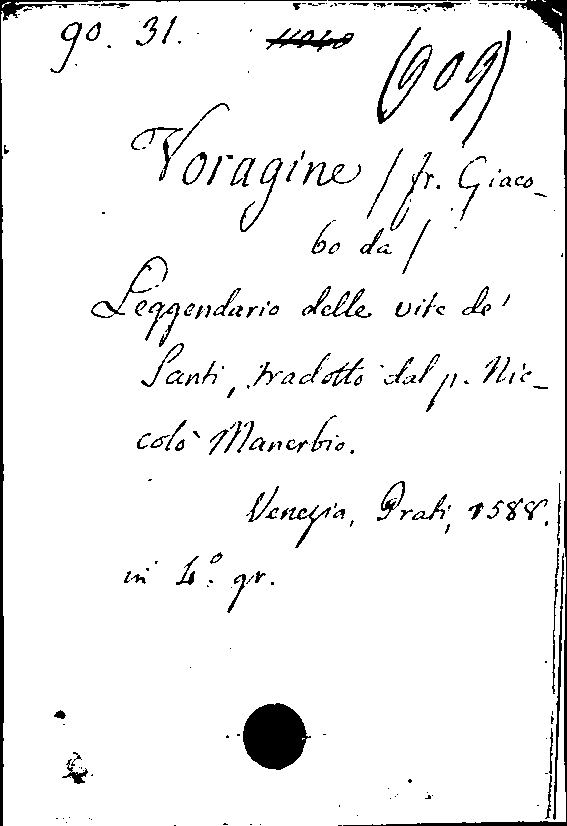 90. 31.
(909)
Voragine / fr. Giaco-
bo da /
Leggendario delle vite de'
Santi, tradotto dal p. Nic-
colò Manerbio.
Venezia, Prati, 1588.
in 4.° gr.